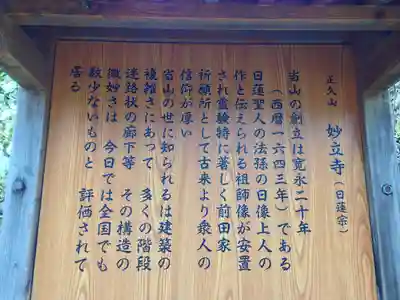 正久山
妙立寺（日蓮宗）
当山の創立は寛永二十年
（西暦一六四三年）である
日蓮聖人の法孫の日像上人の
作と伝えられる祖師像が安置
され霊験特に著しく前田家
祈願所として古来より衆人の
信仰が厚い
当山の世に知られるは建築の
複雑さにあって　多くの階段
迷路状の廊下等　その構造の
微妙さは　今日では全国でも
数少ないものと　評価されて
居る